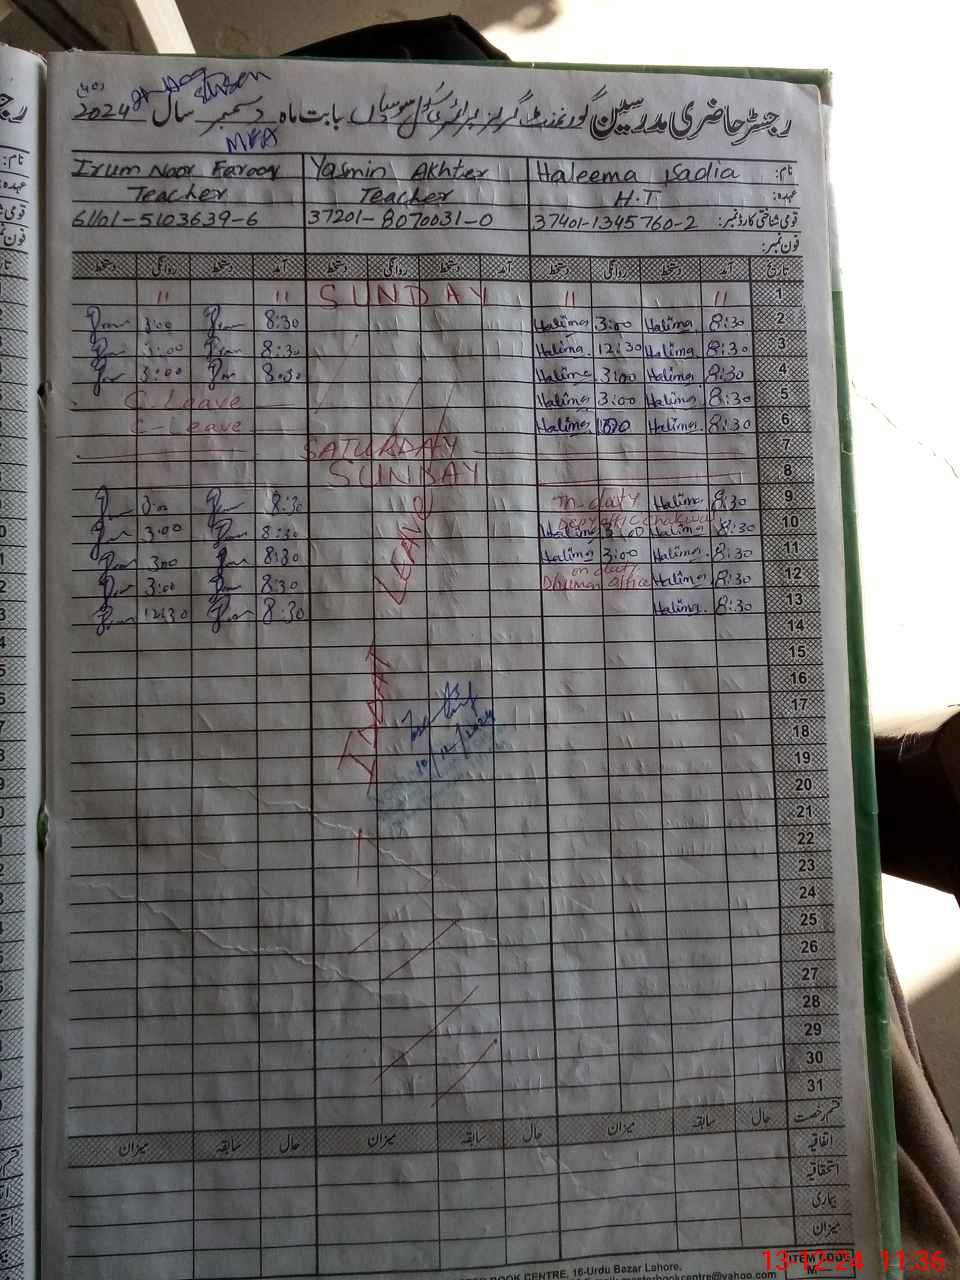 رجسٹر حاضری مدرسین گورنمنٹ گرلز پرائمری سکول بابت ماہ دسمبر سال 2024
MEA
نام: Haleema Sadia Yasmin Akhter Irum Noor Farooq
عہدہ: H.T. Teacher Teacher
قومی شناختی کارڈ نمبر: 37401-1345760-2 37201-8070031-0 61101-5103639-6
فون نمبر:
تاریخ آمد دستخط روانگی دستخط آمد دستخط روانگی دستخط آمد دستخط روانگی دستخط
1 " " SUNDAY " "
2 8:30 Halima 3:00 Halima 8:30 3:00
3 8:30 Halima 12:30 Halima 8:30 3:00
4 8:30 Halima 3:00 Halima 8:30 3:00
5 8:30 Halima 3:00 Halima C-Leave
6 8:30 Halima Halima C-Leave
7 SATURDAY
8 SUNDAY
9 8:30 Halima on duty 8:30 3:00
10 8:30 Halima 3:00 Halima 8:30 3:00
11 8:30 Halima 3:00 Halima 8:30 3:00
12 8:30 Halima on duty Dhuman office 8:30 3:00
13 8:30 Halima 8:30 12:30
LEAVE
14
15
16
17
10/12/2024
18
19
20
21
22
23
24
25
26
27
28
29
30
31
قسم رخصت حال سابقہ میزان حال سابقہ میزان حال سابقہ میزان
اتفاقیہ
استحقاقیہ
بیماری
میزان
ITEM CODE
BOOK CENTRE, 16-Urdu Bazar Lahore,
masterbookcentre@yahoo.com
13-12-24 11:36